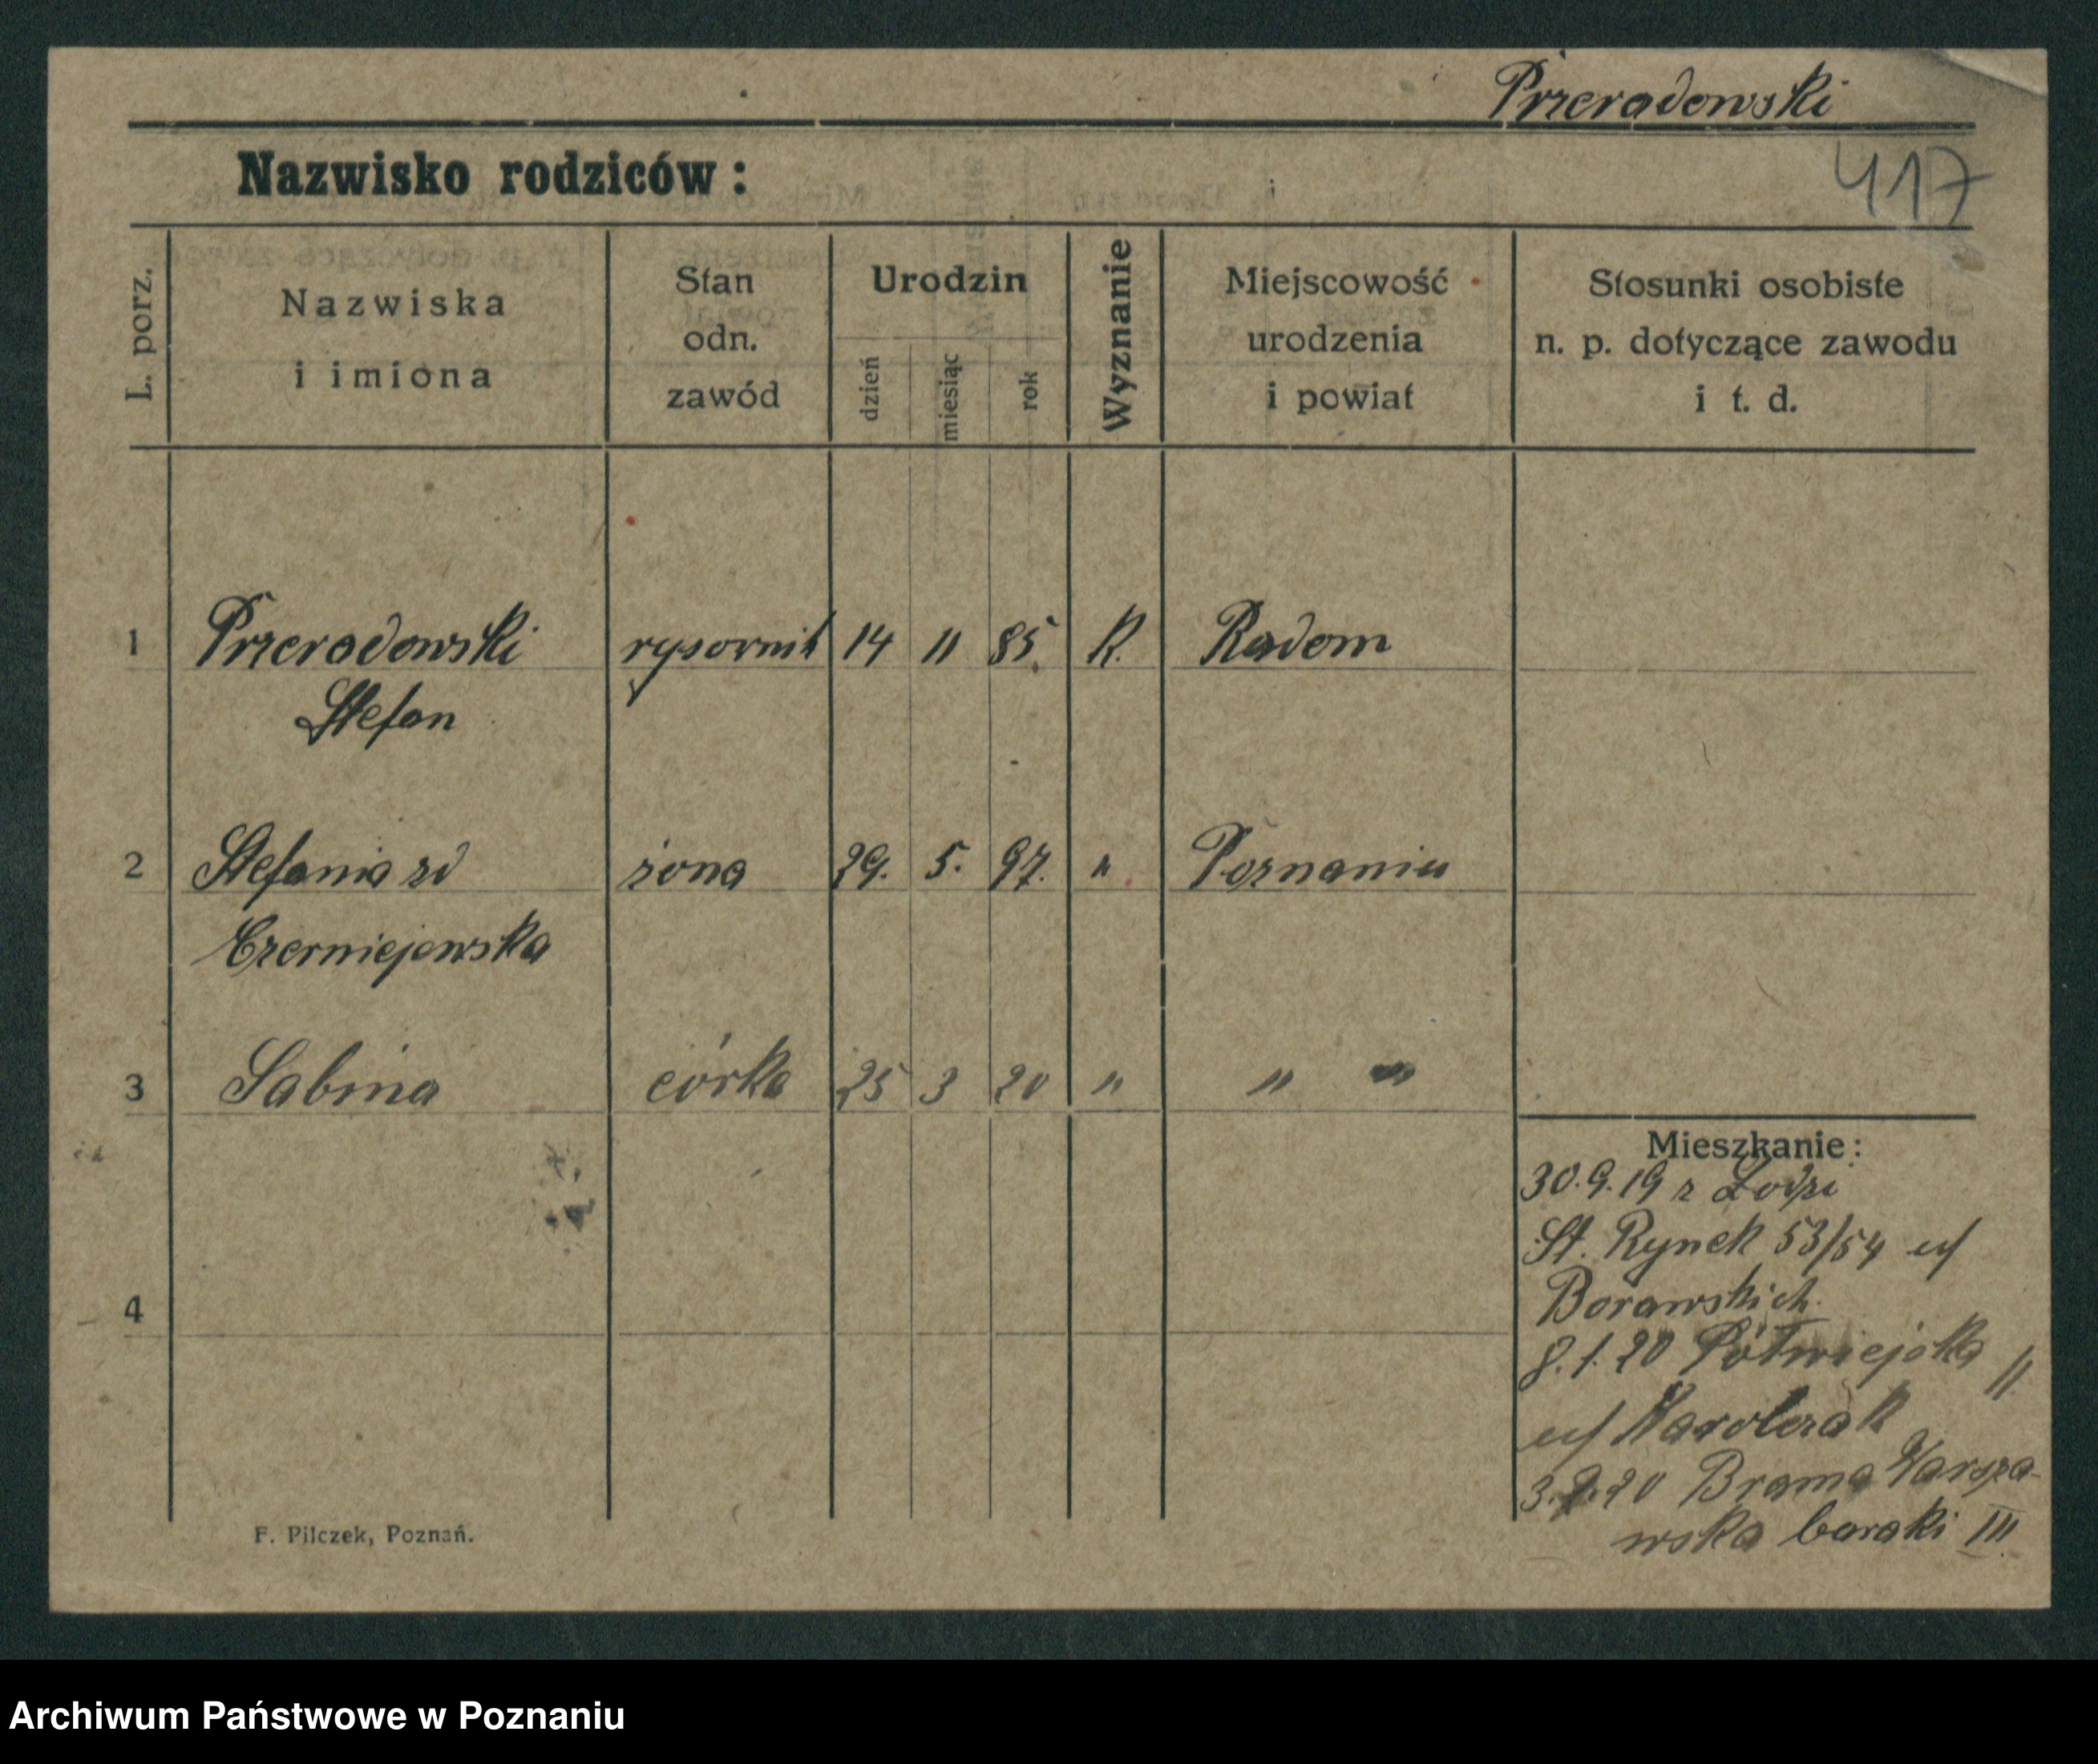 Przeradowski
Nazwisko rodziców:
417
L. porz.
Nazwiska
i imiona
Stan
odn.
zawód
Urodzin
dzień
miesiąc
rok
Wyznanie
Miejscowość
urodzenia
i powiat
Stosunki osobiste
n. p. dotyczące zawodu
i t. d.
1 Przeradowski rysownik 14 11 85 K. Radom
Stefan
2 Stefania zd żona 29. 5. 97. " Poznaniu
Czerniejewska
3 Sabina córka 25 3 20 " " "
Mieszkanie:
30.9.19 z Łodzi
St. Rynek 53/54 u/
Borawskich
4
8.1.20 Półwiejska 11
u/ Karolczak
3.2.20 Brama Warsza-
wska baraki III
F. Pilczek, Poznań.
Archiwum Państwowe w Poznaniu